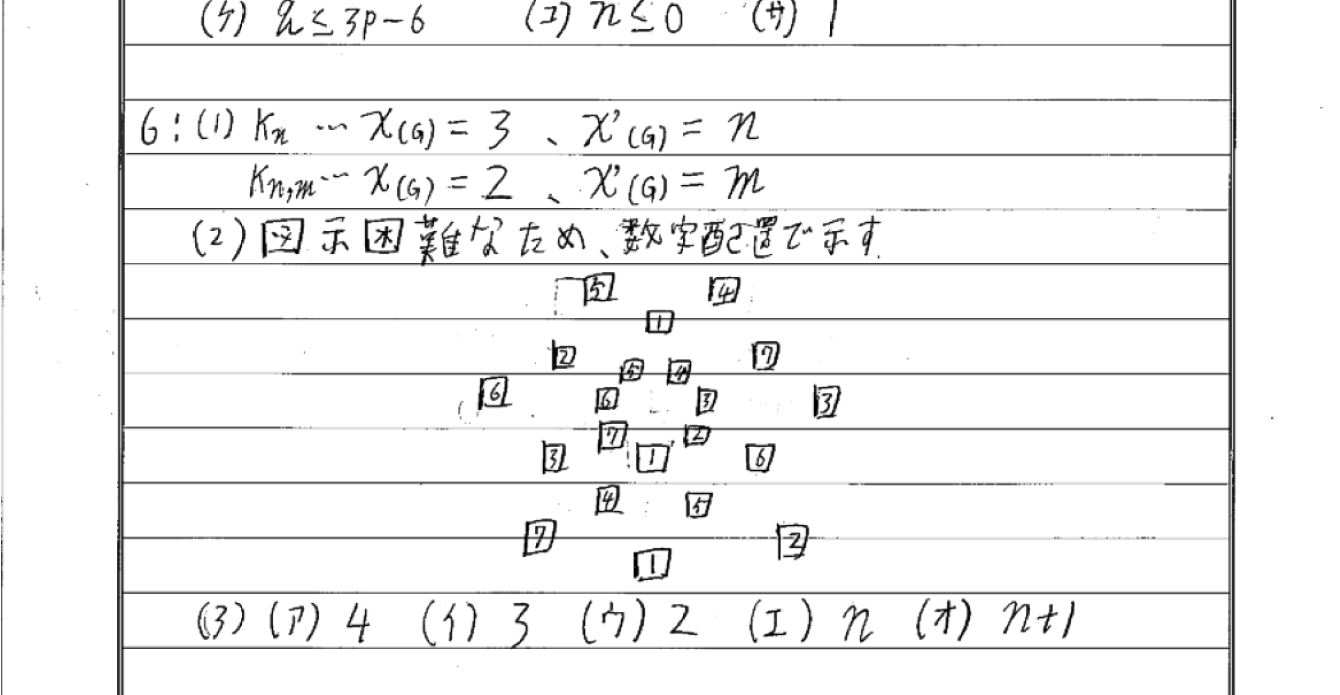 (ケ) q≤3p-6 (コ) n≤0 (サ) 1
6:(1) Kn … χ(G) = 3 、χ'(G) = n
Kn,m… χ(G) = 2 、χ'(G) = m
(2) 図示困難なため、数字配置で示す.
5 4
1
2 7
5 4
6 6 3 3
7 2
3 1 6
4 5
7 2
1
(3) (ア) 4 (イ) 3 (ウ) 2 (エ) n (オ) n+1